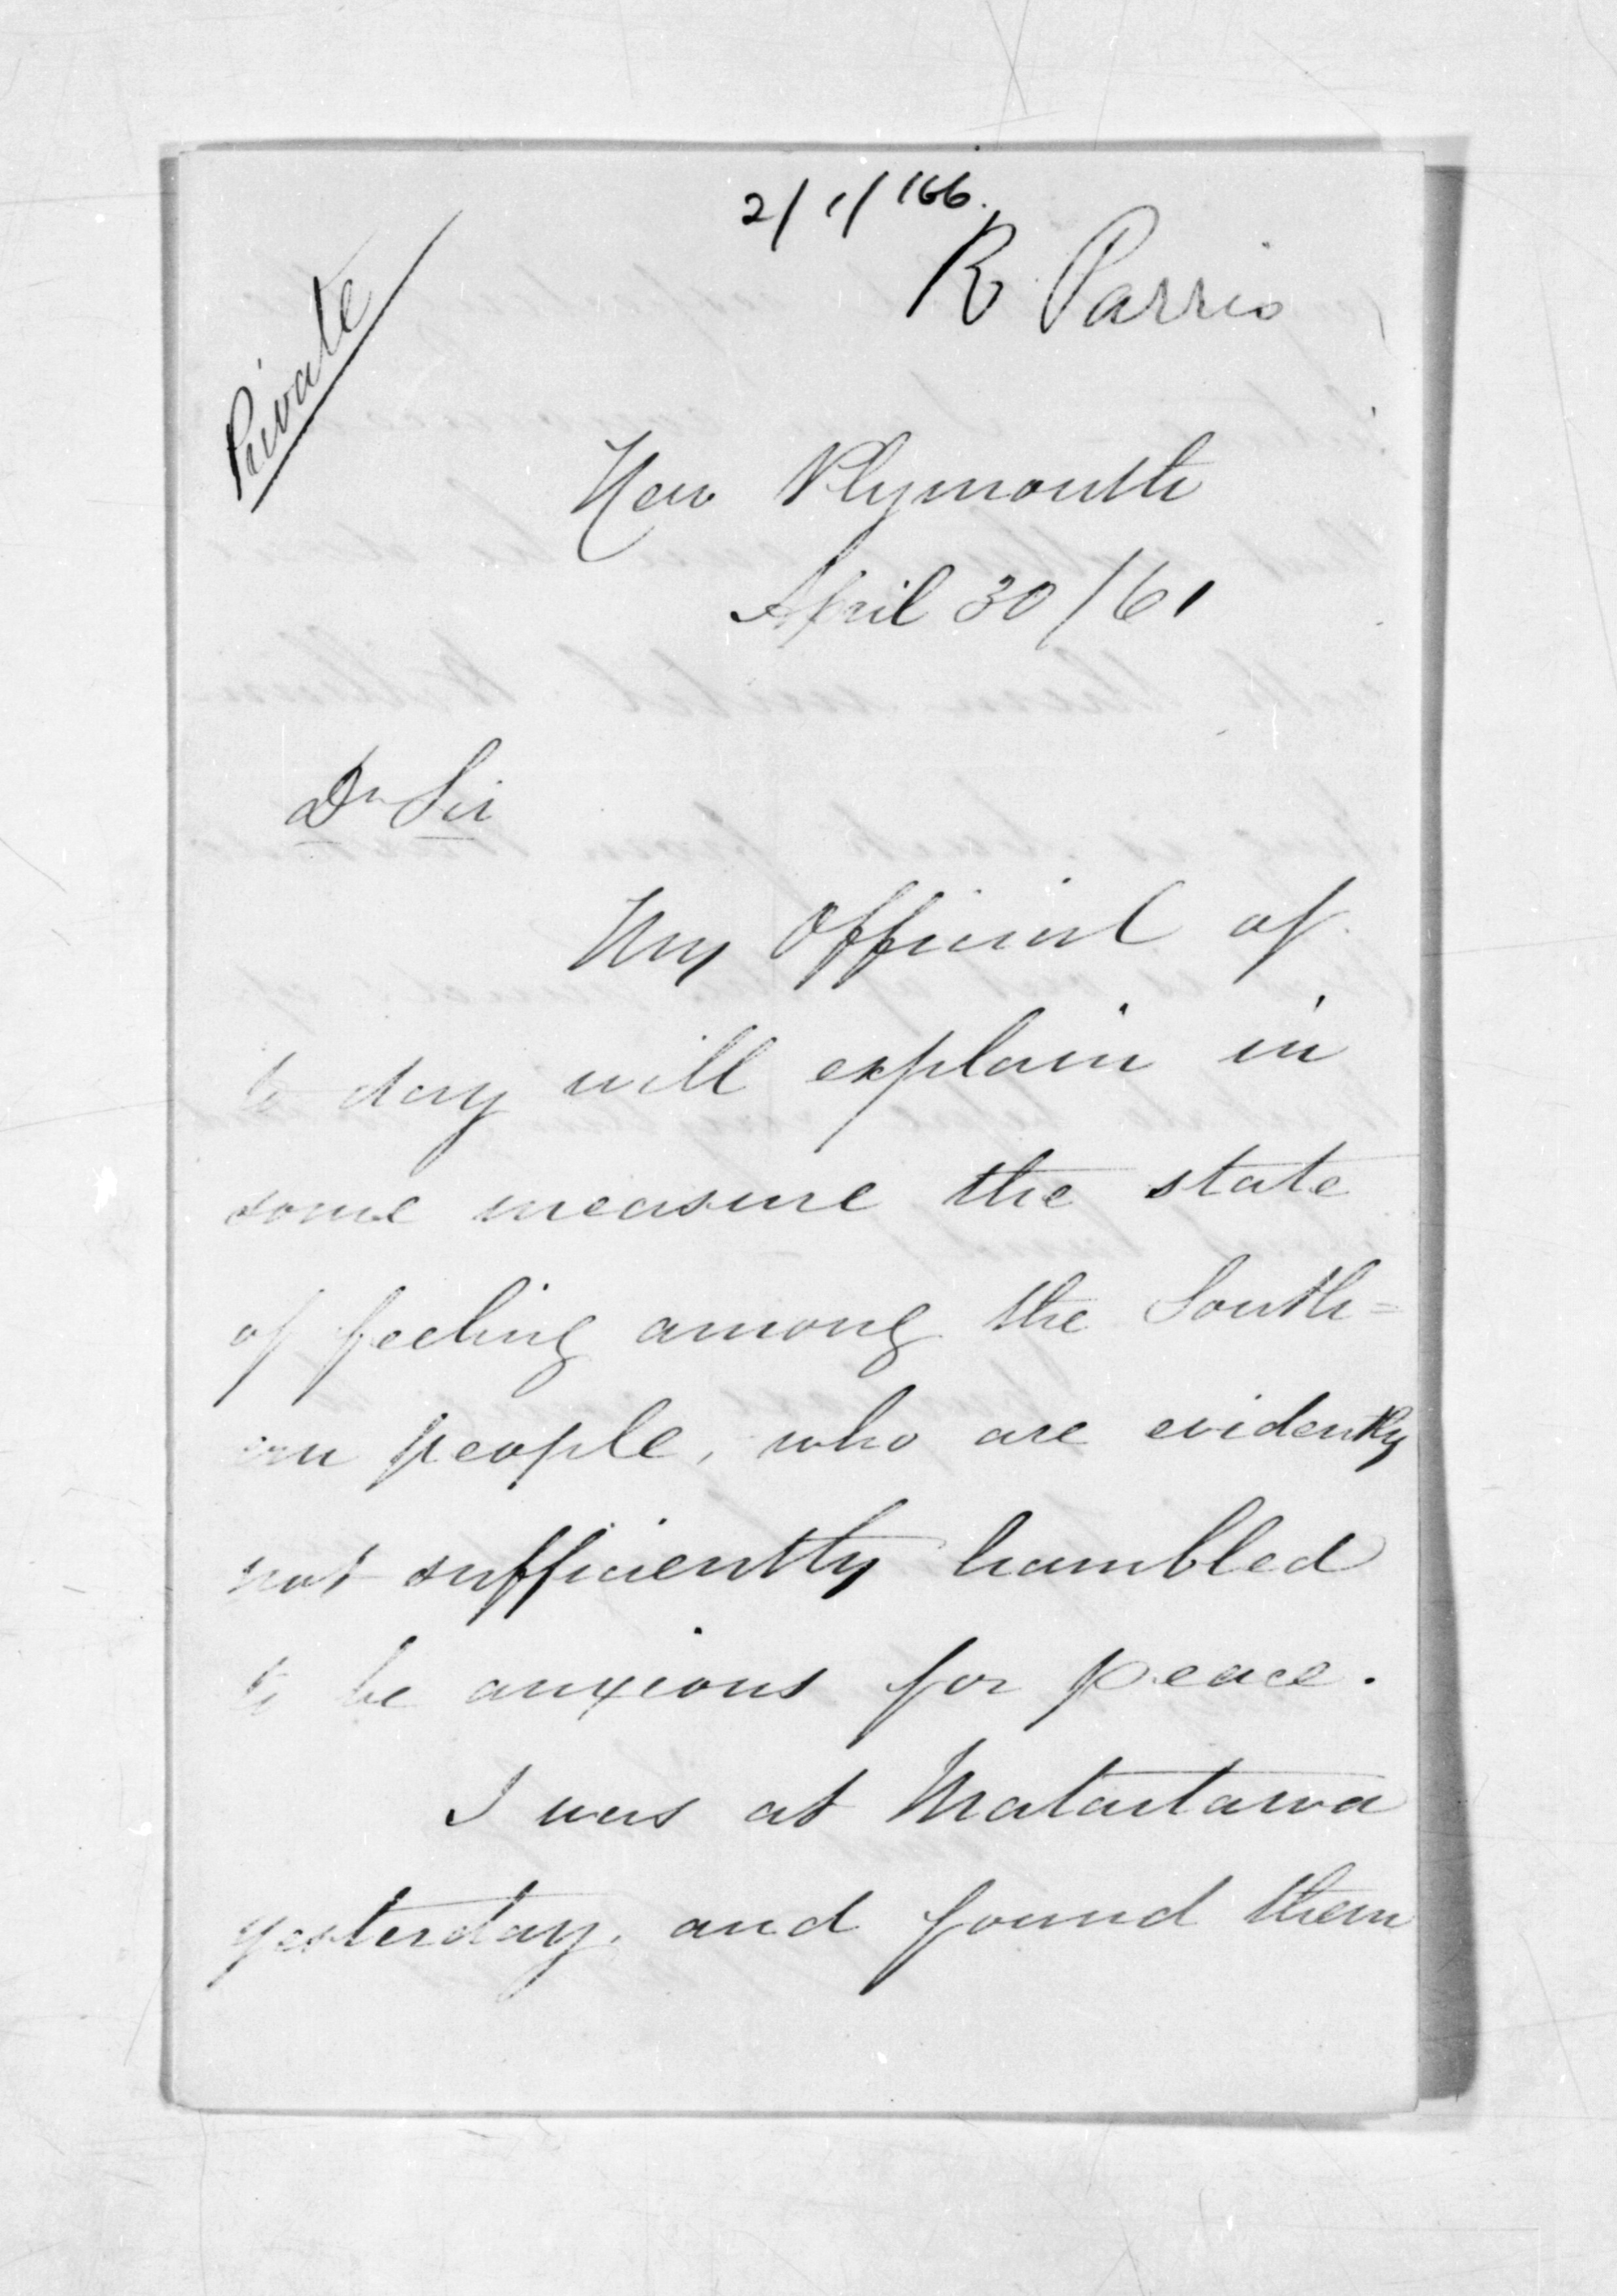 2/1/166.
R Parris
Private
New Plymouth
April 30/61
Dr Sir
My Official of
to day will explain in
some measure the state
of feeling among the South=
ern people, who are evidently
not sufficiently humbled
to be anxious for peace.
I was at Mataitawa
yesterday, and found them